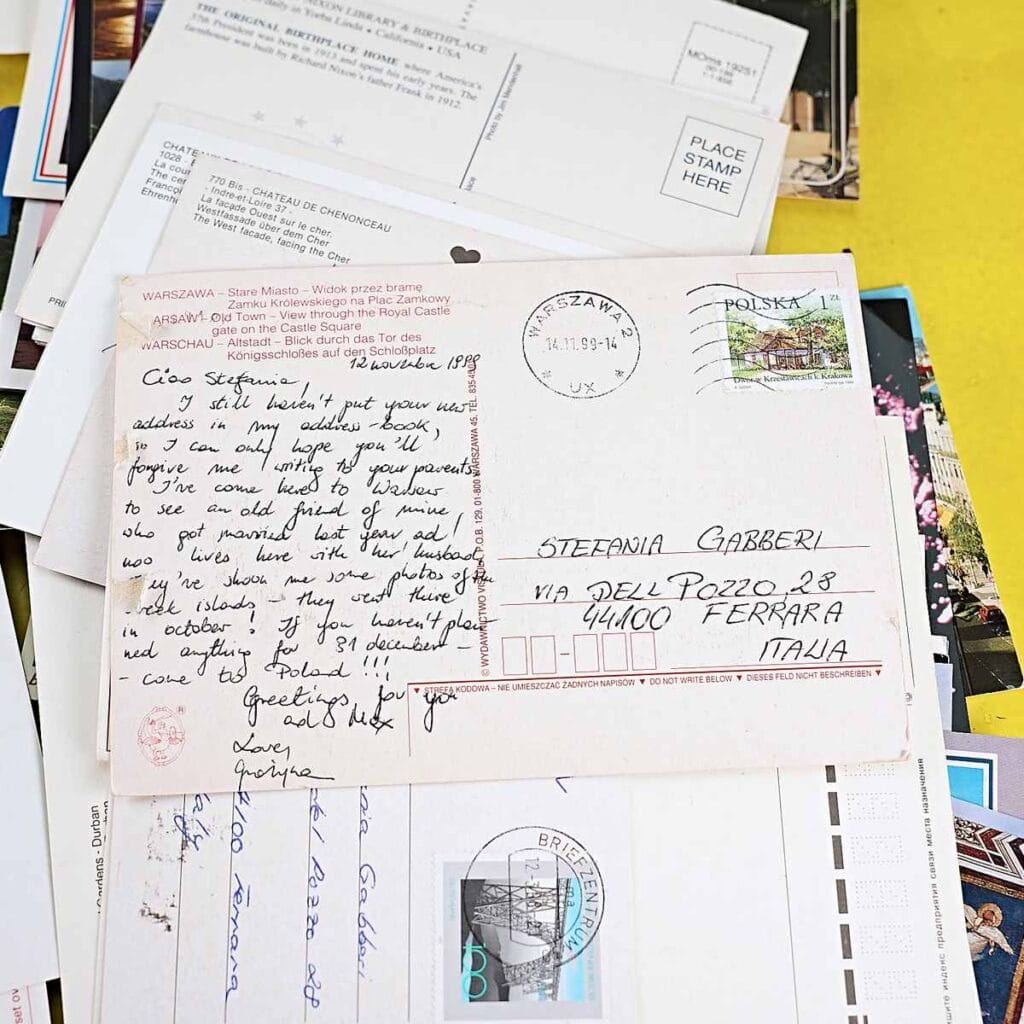 NIXON LIBRARY & BIRTHPLACE
daily in Yorba Linda • California • USA
THE ORIGINAL BIRTHPLACE HOME where America's
37th President was born in 1913 and spent his early years. The
farmhouse was built by Richard Nixon's father Frank in 1912.
Photo by Jim Mendenhall
PLACE
STAMP
HERE
MOms 19251
1028 -
La cour
The cer
Françoi
Ehrenho
770 Bis - CHATEAU DE CHENONCEAU
- Indre-et-Loire 37 -
La façade Ouest sur le cher.
Westfassade über dem Cher
The West facade, facing the Cher
WARSZAWA – Stare Miasto – Widok przez bramę
Zamku Królewskiego na Plac Zamkowy
ARSAW – Old Town – View through the Royal Castle
gate on the Castle Square
WARSCHAU – Altstadt – Blick durch das Tor des
Königsschloßes auf den Schloßplatz
12 november 1999
Ciao Stefania,
I still haven't put your new
address in my address-book,
so I can only hope you'll
forgive me writing to your parents.
I've come here to Warsaw
to see an old friend of mine,
who got married last year ad
noo lives here with her husband
ey've shook me some photos of the
eek islands – they went there
in october! If you haven't plan-
ned anything for 31 december –
– come to Poland!!!
Greetings for you
ad Max
Love,
Grażyna
WARSZAWA 2
14.11.99-14
UX
POLSKA 1 ZŁ
Dwór w Krzesławicach k. Krakowa
STEFANIA GABBERI
VIA DELL POZZO, 28
44100 FERRARA
ITALIA
▼ STREFA KODOWA – NIE UMIESZCZAĆ ŻADNYCH NAPISÓW ▼ DO NOT WRITE BELOW ▼ DIESES FELD NICHT BESCHREIBEN ▼
P.O.B. 129, 01-800 WARSZAWA 45, TEL.
Gardens - Durban
Gabberi
del Pozzo 28
4100 Ferrara
BRIEFZENTRUM
100
индекс предприятия связи места назначения